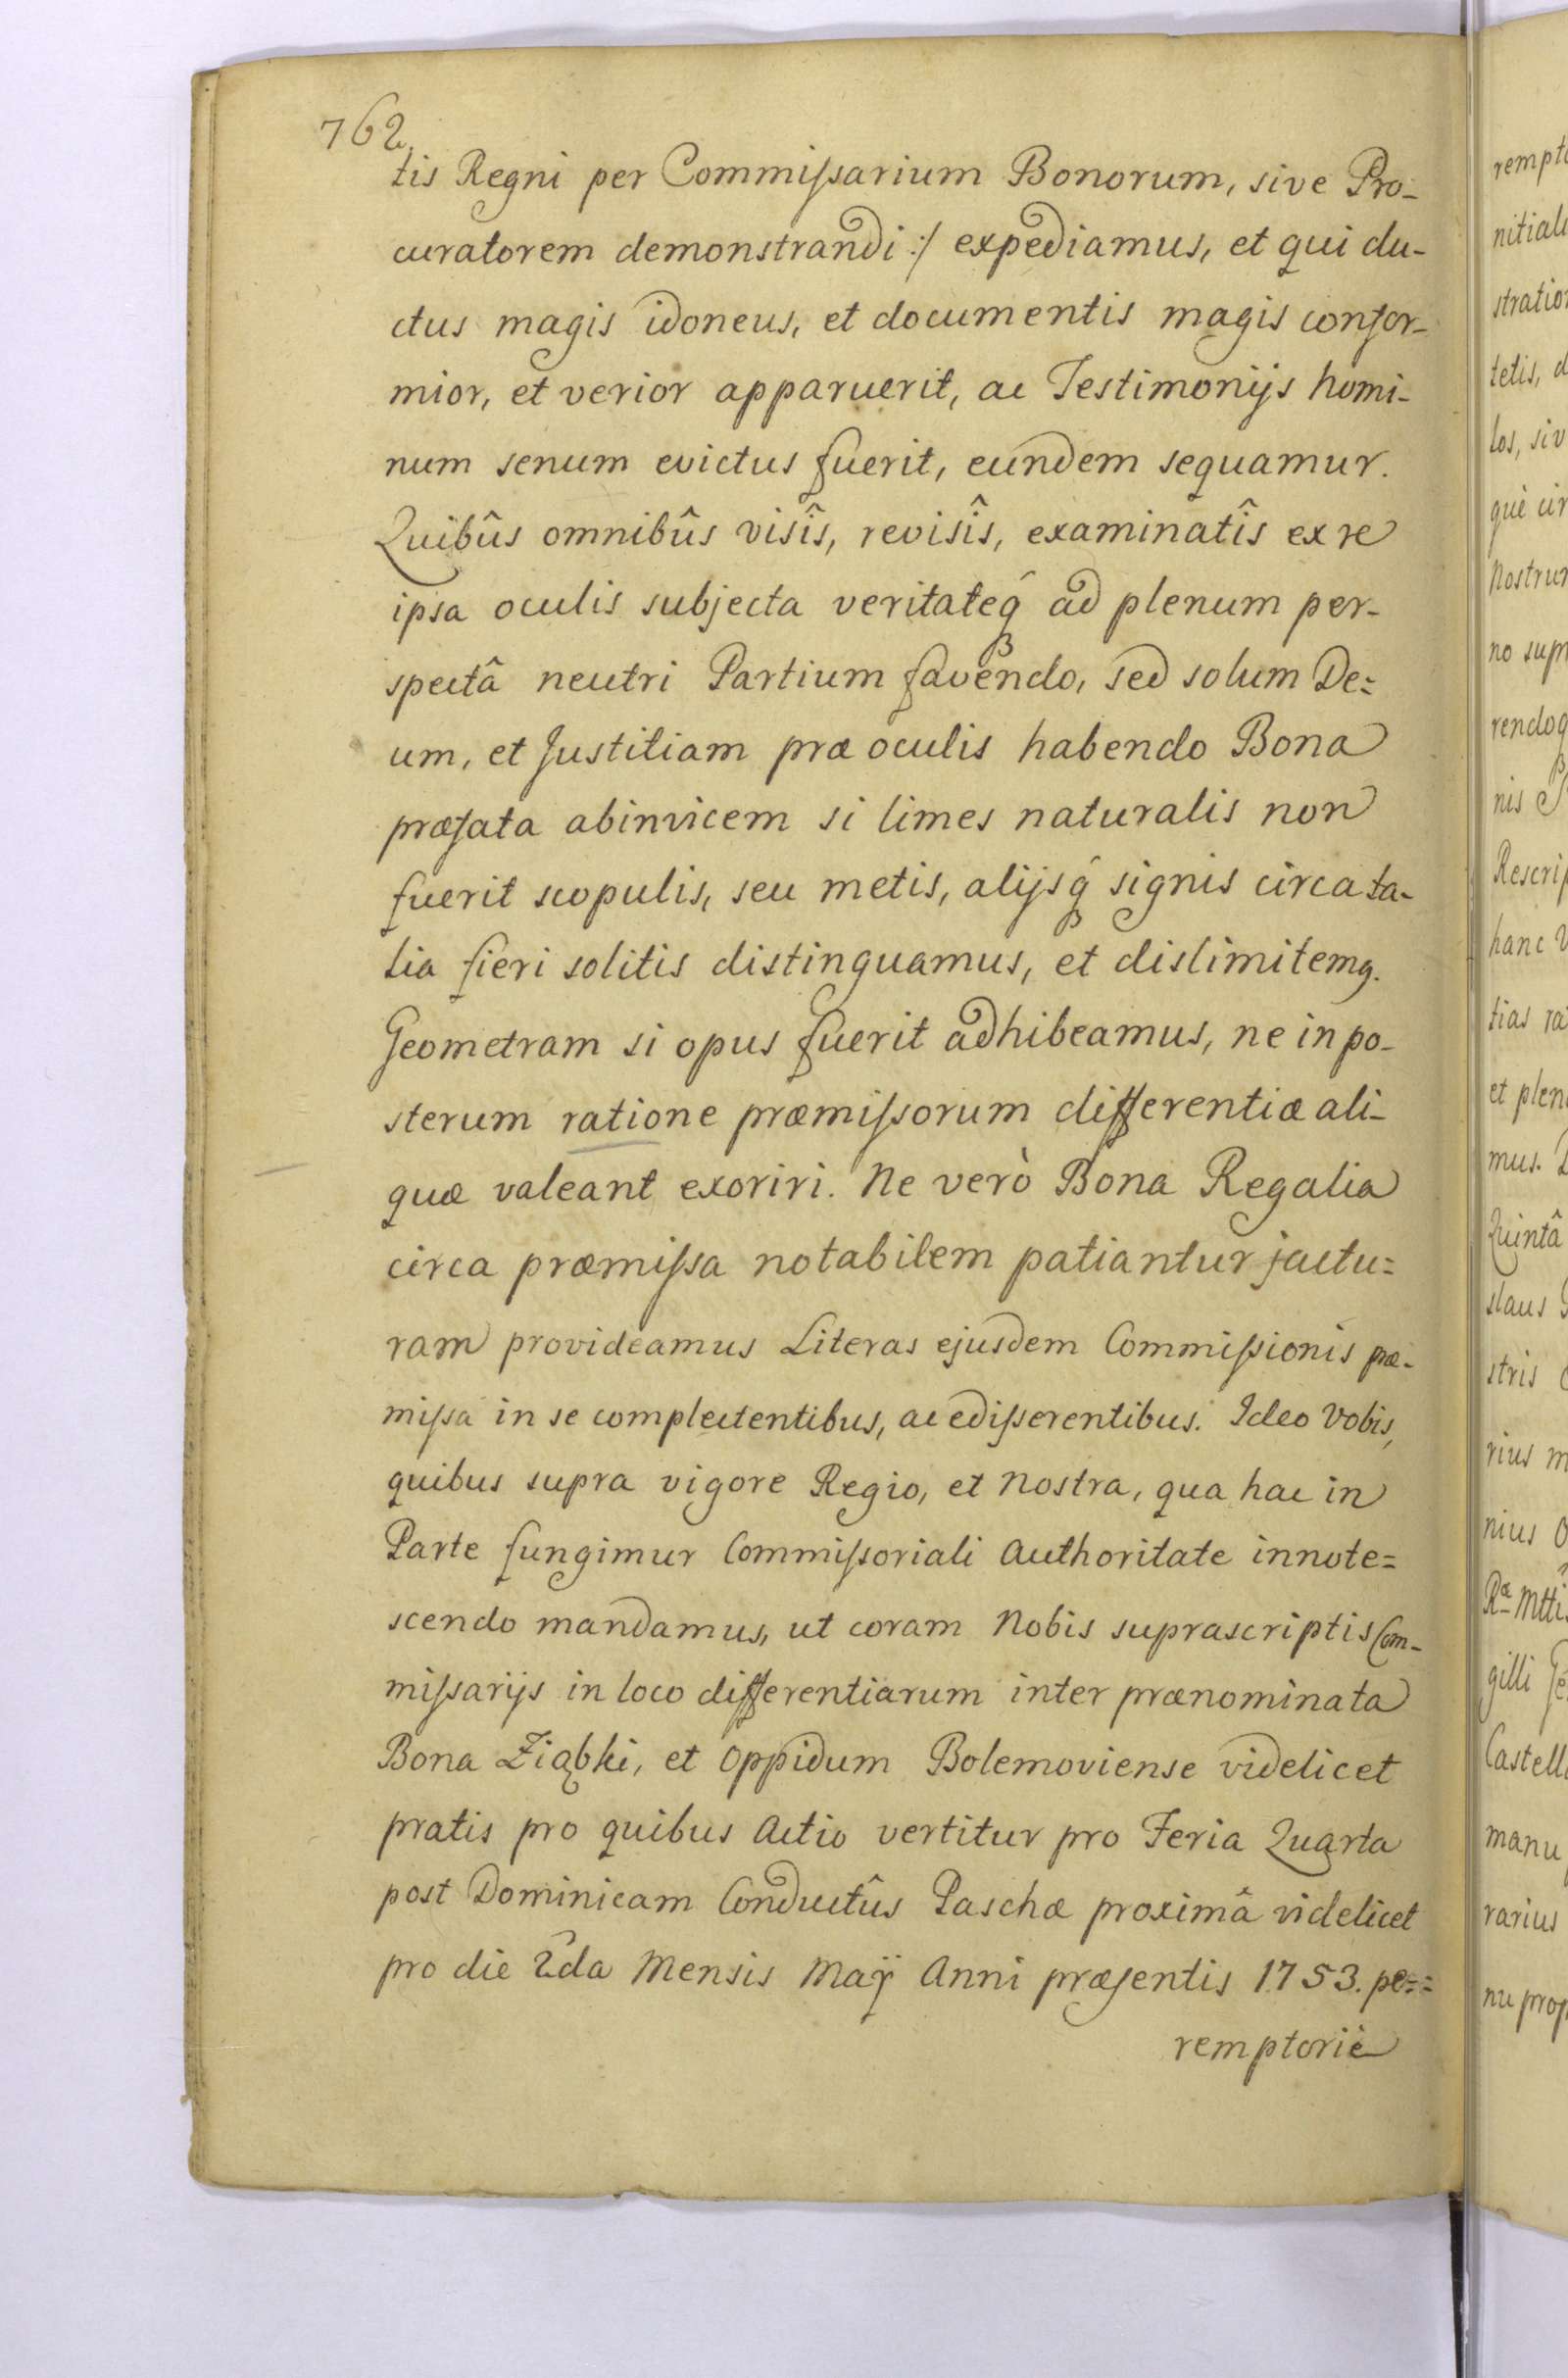 762
tis Regni per Commissarium Bonorum, sive Pro-
curatorem demonstrandi :/ expediamus, et qui du-
ctus magis idoneus, et documentis magis confor-
mior, et verior apparuerit, ac Testimonijs homi-
num senum evictus fuerit, eundem sequamur.
Quibûs omnibûs visîs, revisîs, examinatîs ex re
ipsa oculis subjecta veritateq́ ad plenum per-
spectâ neutri Partium favendo, sed solum De=
um, et Justitiam præ oculis habendo Bona
præfata abinvicem si limes naturalis non
fuerit scopulis, seu metis, alijsq́ signis circa ta-
lia fieri solitis distinguamus, et dislimitemq.
Geometram si opus fuerit adhibeamus, ne in po-
sterum ratione præmissorum differentiæ ali-
quæ valeant exoriri. Ne verò Bona Regalia
circa præmissa notabilem patiantur jactu=
ram provideamus Literas ejusdem Commissionis præ-
missa in se complectentibus, ac edisserentibus. Ideo Vobis,
quibus supra vigore Regio, et Nostra, qua hac in
Parte fungimur Commissoriali Authoritate innote=
scendo mandamus, ut coram Nobis suprascriptis Com-
missarijs in loco differentiarum inter prænominata
Bona Ziąbki, et Oppidum Bolemoviense videlicet
pratis pro quibus Actio vertitur pro Feria Quarta
post Dominicam Conductûs Paschæ proximâ videlicet
pro die 2da Mensis Maÿ Anni præsentis 1753. pe==
remptoriè
rempto
nitiali
stration
tetis, d
los, siv
què cir
Nostrum
no sup
rendoq
nis
Rescrip
hanc V
tias ra
et plen
mus.
Quintâ
slaus
stris
rius m
nius
Ræ Mtti
gilli
Castell
manu
rarius
nu prop